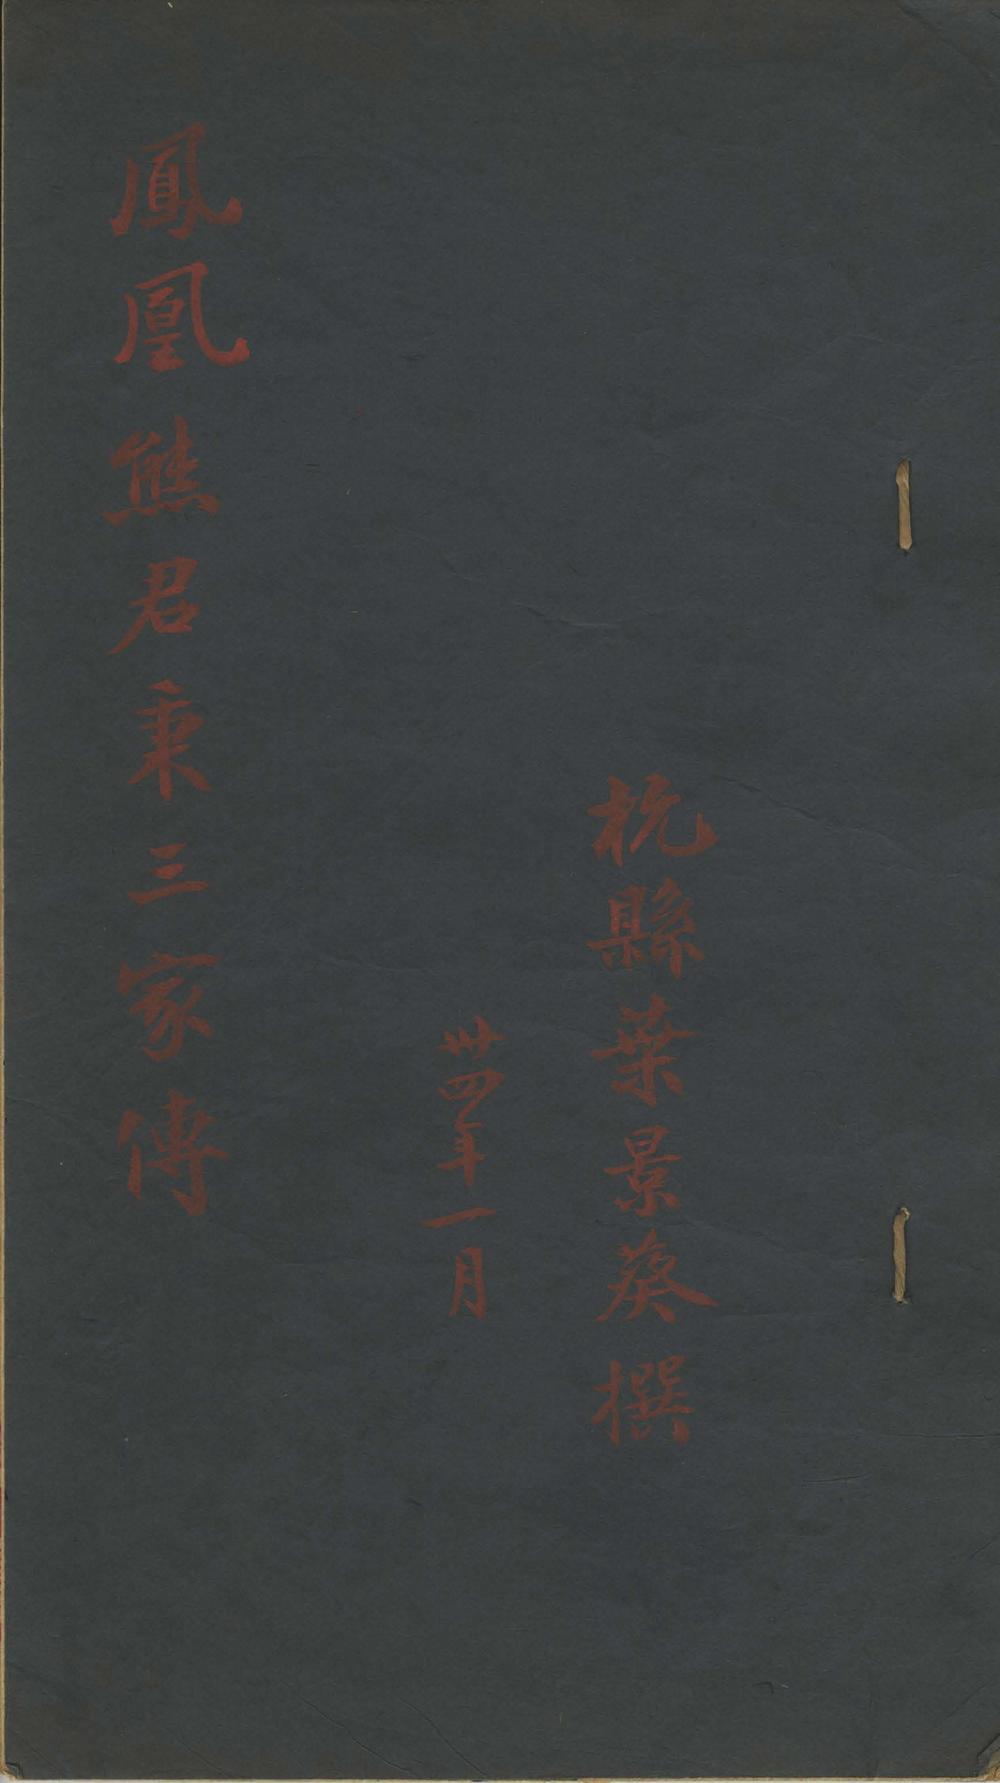 杭縣葉景葵撰
卅四年一月
鳳凰熊君秉三家傳